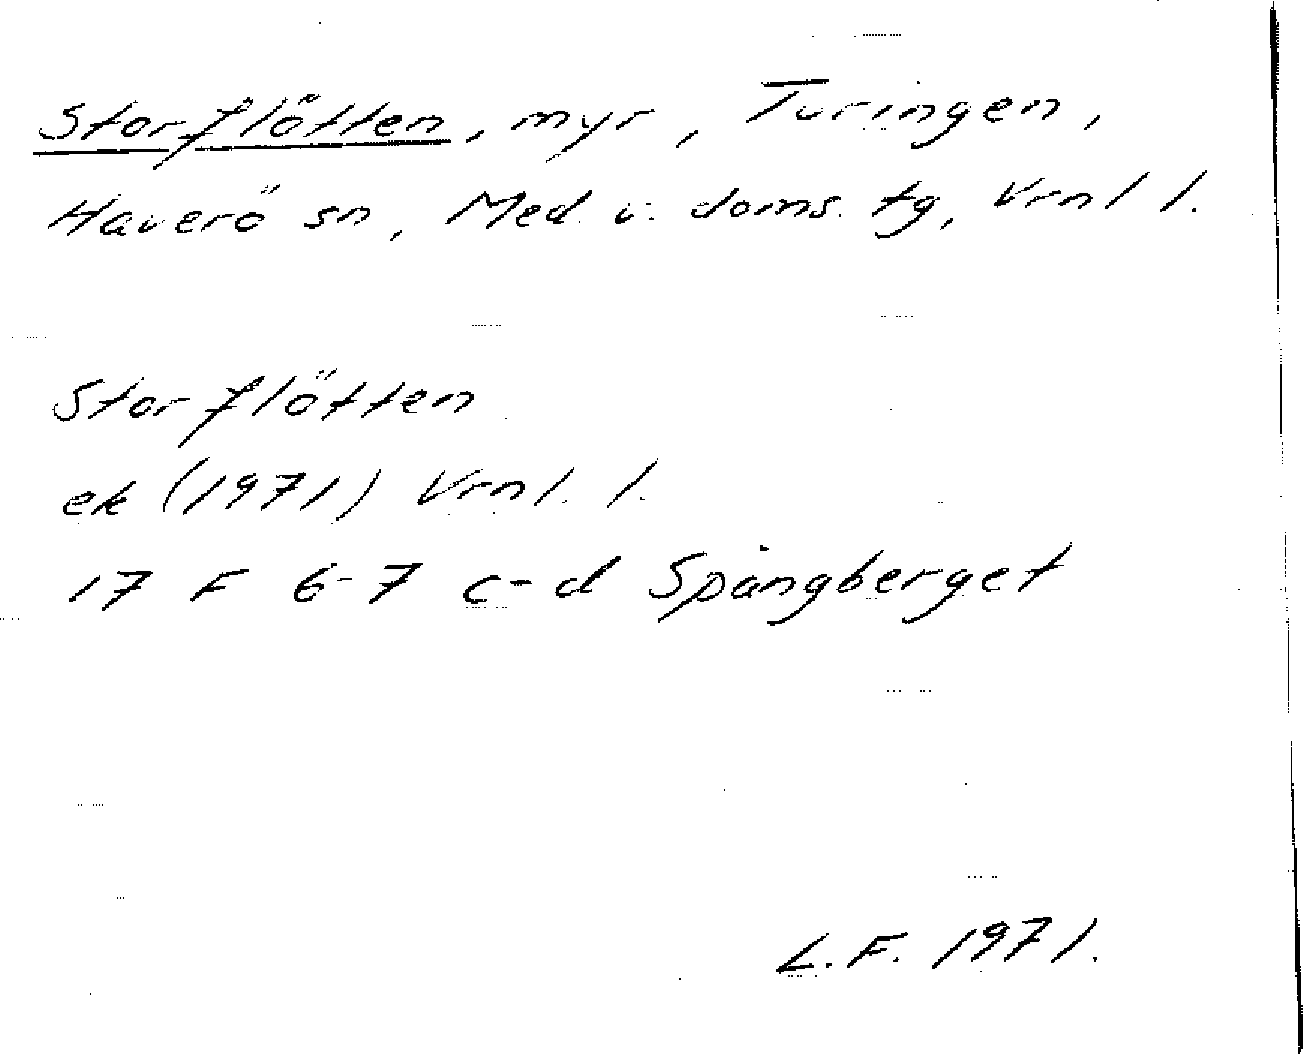 Storflötten, myr, Turingen,
Haverö sn, Med. v. doms. tg, Vrnl l.
Storflötten
ek (1971) Vrnl. l.
17 F 6-7 c-d Spångberget
L.F. 1971.